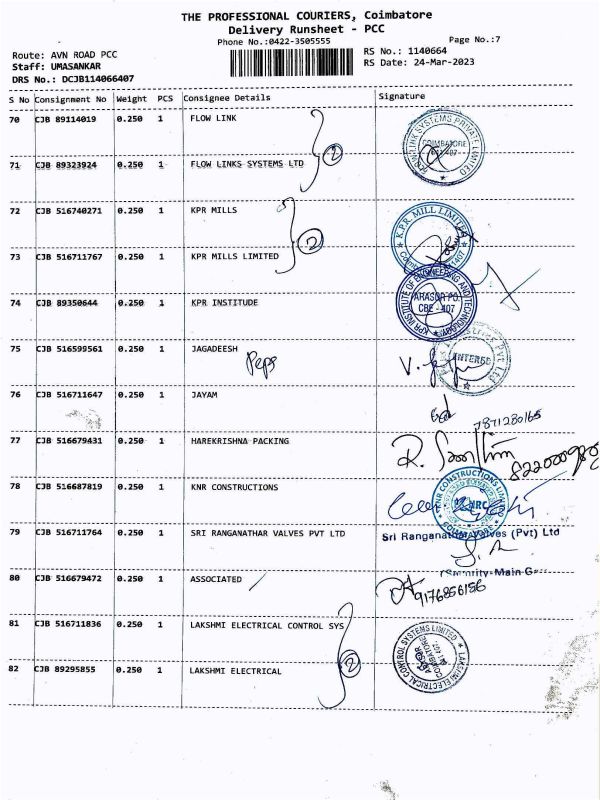 THE PROFESSIONAL COURIERS, Coimbatore
Delivery Runsheet - PCC
Phone No.:0422-3505555
Page No.:7
Route: AVN ROAD PCC
RS No.: 1140664
Staff: UMASANKAR
RS Date: 24-Mar-2023
DRS No.: DCJB114066407
S No Consignment No Weight PCS Consignee Details Signature
70 CJB 89114019 0.250 1 FLOW LINK
2
71 CJB 89323924 0.250 1 FLOW LINKS SYSTEMS LTD
72 CJB 516740271 0.250 1 KPR MILLS
K.P.R. MILL LIMITED
2
73 CJB 516711767 0.250 1 KPR MILLS LIMITED
74 CJB 89350644 0.250 1 KPR INSTITUDE
KPR INSTITUTE OF ENGINEERING AND TECHNOLOGY
ARASUR PO.
CBE - 407
75 CJB 516599561 1 0.250 JAGADEESH
Peps
INTERED
76 CJB 516711647 0.250 1 JAYAM
7871280165
77 CJB 516679431 0.250 1 HAREKRISHNA PACKING
78 CJB 516687819 0.250 1 KNR CONSTRUCTIONS
KNR CONSTRUCTIONS LIMITED
79 CJB 516711764 0.250 1 SRI RANGANATHAR VALVES PVT LTD
Sri Ranganathar Valves (Pvt) Ltd
80 CJB 516679472 0.250 1 ASSOCIATED
9176856156
81 CJB 516711836 0.250 1 LAKSHMI ELECTRICAL CONTROL SYS
LAKSHMI ELECTRICAL CONTROL SYSTEMS LIMITED
2
82 CJB 89295855 0.250 1 LAKSHMI ELECTRICAL